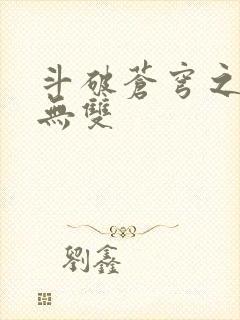 斗破蒼穹之
無雙
劉鑫